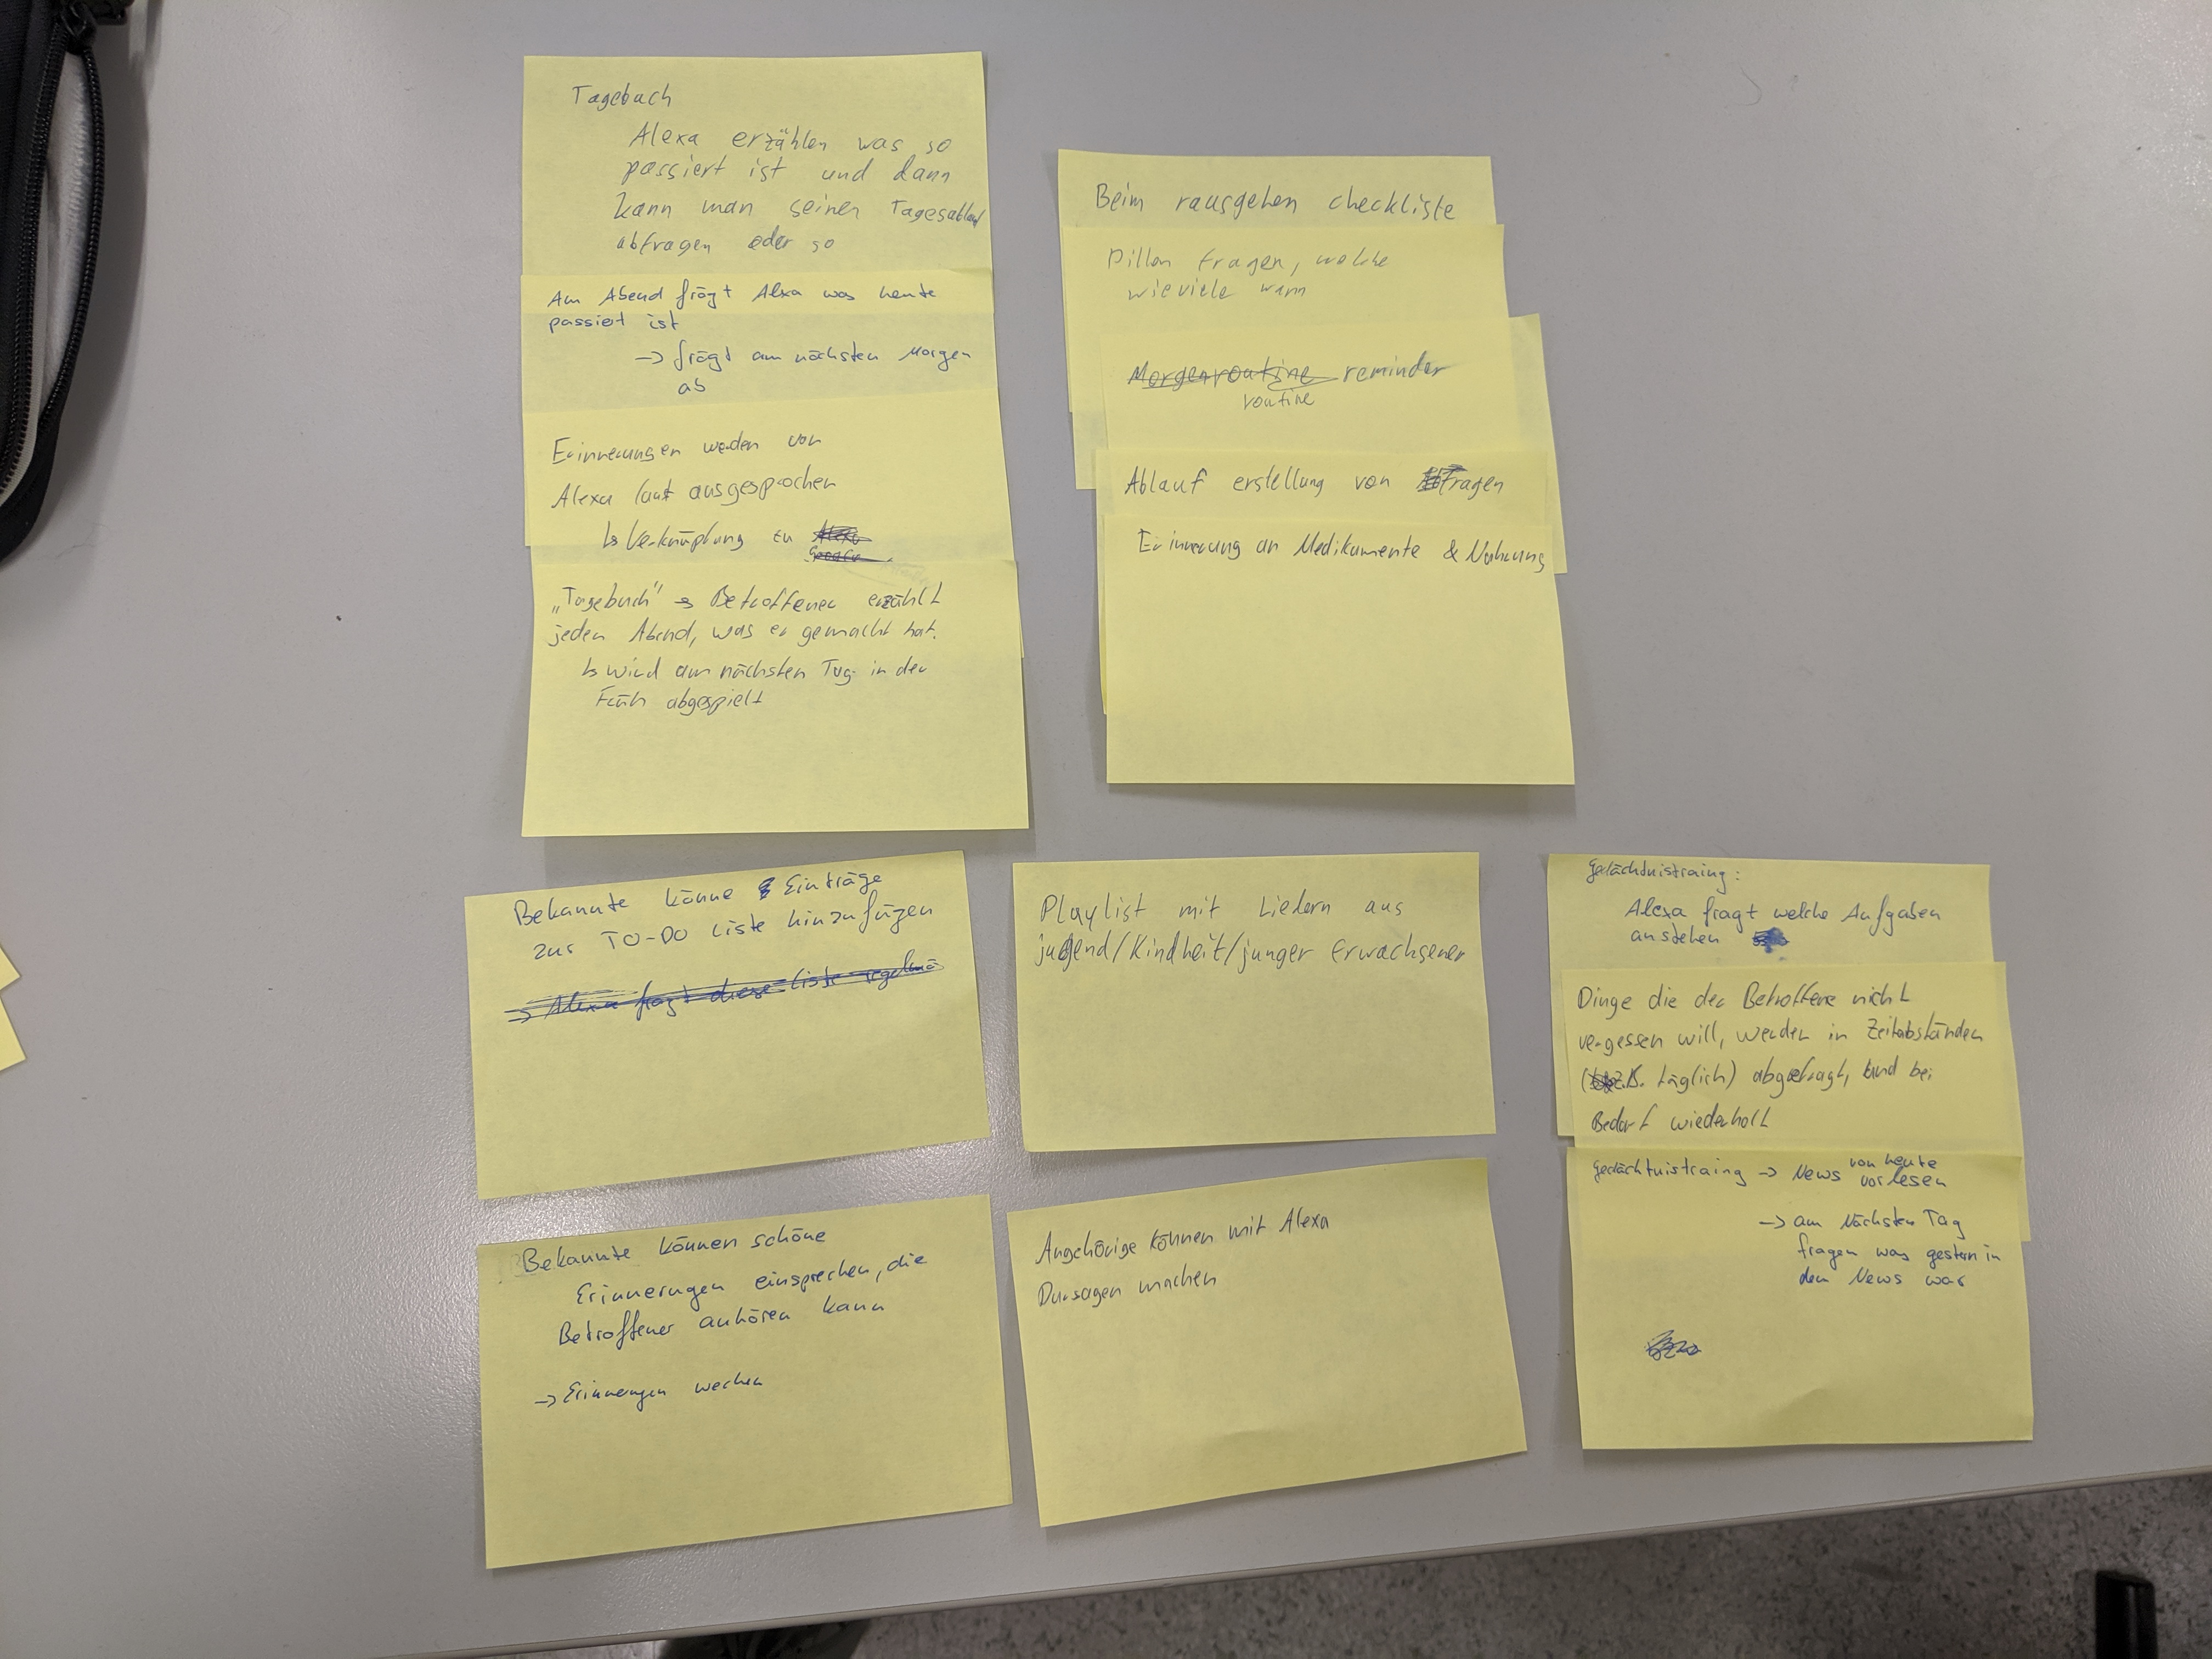 Tagebuch
Alexa erzählen was so
passiert ist und dann
kann man seinen Tagesablauf
abfragen oder so
Am Abend frägt Alexa was heute
passiert ist
→ frägt am nächsten Morgen
ab
Erinnerungen werden von
Alexa laut ausgesprochen
↳ Verknüpfung zu
„Tagebuch" → Betroffener erzählt
jeden Abend, was er gemacht hat.
↳ wird am nächsten Tag in der
Früh abgespielt
Beim rausgehen checkliste
Pillen fragen, welche
wieviele wann
Morgenroutine reminder
routine
Ablauf erstellung von fragen
Erinnerung an Medikamente & Nahrung
Bekannte könne Einträge
zur TO-DO Liste hinzufügen
→ Alexa fragt diese Liste regelmä
Playlist mit Liedern aus
jugend/Kindheit/junger Erwachsener
Gedächtnistraing:
Alexa fragt welche Aufgaben
anstehen
Dinge die der Betroffene nicht
vergessen will, werden in Zeitabständen
(z.B. täglich) abgefragt, und bei
Bedarf wiederholt
Gedächtnistraing → News von heute
vorlesen
→ am Nächsten Tag
fragen was gestern in
den News war
Bekannte können schöne
Erinnerungen einsprechen, die
Betroffener anhören kann
→ Erinnerungen wecken
Angehörige können mit Alexa
Dursagen machen